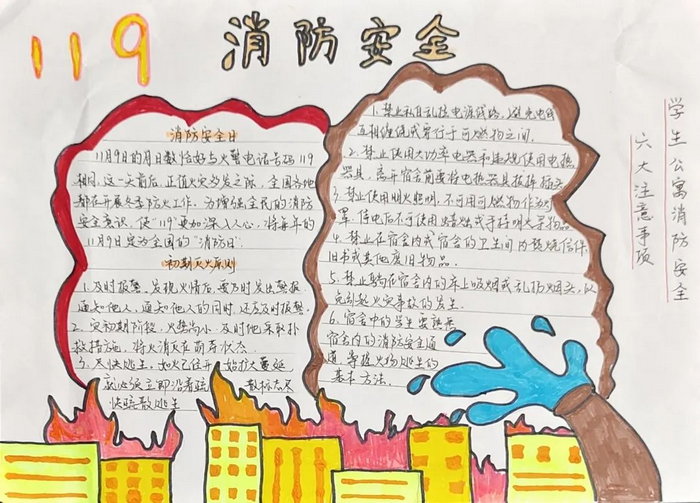 119 消防安全
消防安全日
11月9日的月日数恰好与火警电话号码119
相同,这一天前后,正值火灾多发之际,全国各地
都在开展冬季防火工作。为增强全民的消防
安全意识,使"119"更加深入人心,将每年的
11月9日定为全国的"消防日"
初期灭火原则
1、及时报警,发现火情后,要及时发出警报
通知他人,通知他人的同时,还应及时报警。
2、灾初期阶段,火势尚小,及时他采取扑
救措施,将火消灭在萌芽状态
3、尽快逃生,如火已任开始扩大蔓延
就必须立即沿着
快疏散逃生
1.禁止私自乱拉电源线路,避免电线
互相缠绕或穿行于可燃物之间.
2.禁止使用大功率电器和违规使用电热
器具,离开宿舍前要将电热器具拔掉插头
3.禁止使用明火照明,不可用可燃物作为灯
罩,停电后不可使用蜡烛或手持明火寻物品
4.禁止在宿舍内或宿舍的卫生间内焚烧信件
旧书或其他废旧物品.
5.禁止躺在宿舍内的床上吸烟或乱扔烟头,以
免引起火灾事故的发生.
6.宿舍中的学生要熟悉
宿舍内的消防安全通
道,掌握火场逃生的
基本方法.
学生公寓消防安全
六大注意事项